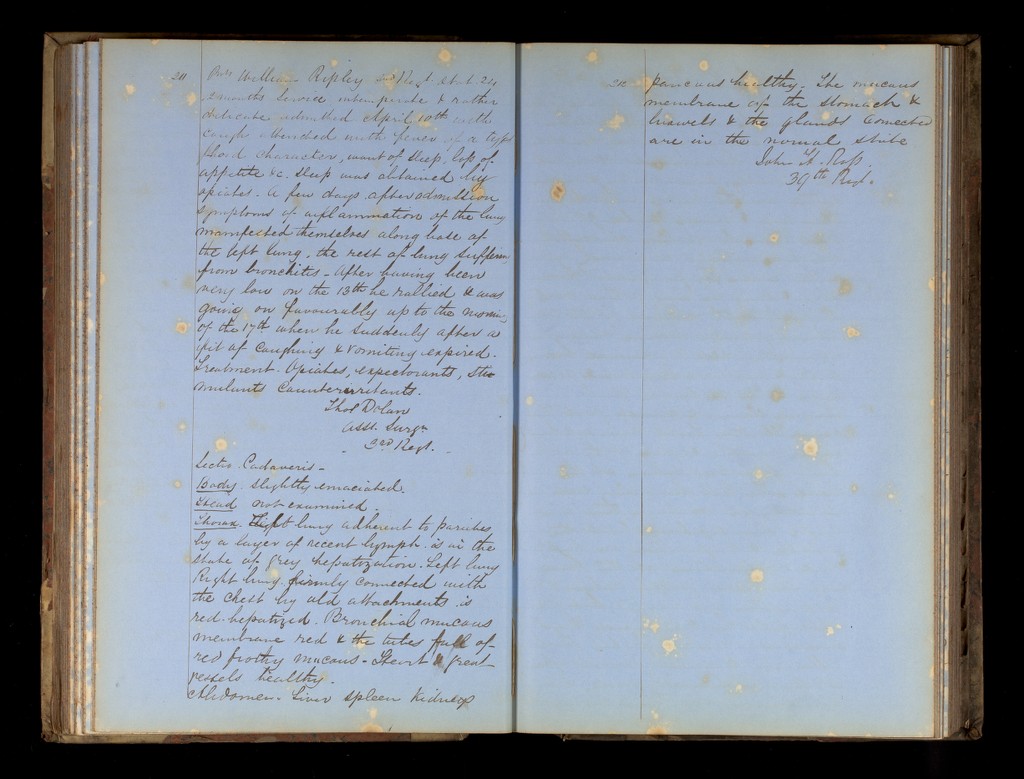 211
Pvte William Ripley 3rd Regt. aet. 24
2 months service intemperate & rather
delicate admitted April 10th with
cough attended with fever of a typ
hoid character, want of sleep, loss of
appetite &c. Sleep was obtained by
opiates. A few days after admission
symptoms of inflammation of the lung
manifested themselves along base of
the left lung, the rest of lung suffering
from bronchitis. After having been
very low on the 13th he rallied & was
going on favourably up to the morning
of the 17th when he suddenly after a
fit of coughing & vomiting expired.
Treatment. Opiates, expectorants, sti
mulants counterirritants.
Thos Dolan
Asst. Surgn
3rd Regt.
Sectio Cadaveris -
Body slightly emaciated.
Head not examined.
Thorax. Left lung adherent to parietes
by a layer of recent lymph is in the
state of grey hepatization. Left lung
Right lung firmly connected with
the chest by old attachments is
red hepatized. Bronchial mucous
membrane red & the tubes full of
red frothy mucous - Heart & great
vessels healthy.
Abdomen. Liver spleen kidneys
212
pancreas healthy. The mucous
membrane of the stomach &
bowels & the glands connected
are in the normal state
John H. Ross.
39th Regt.